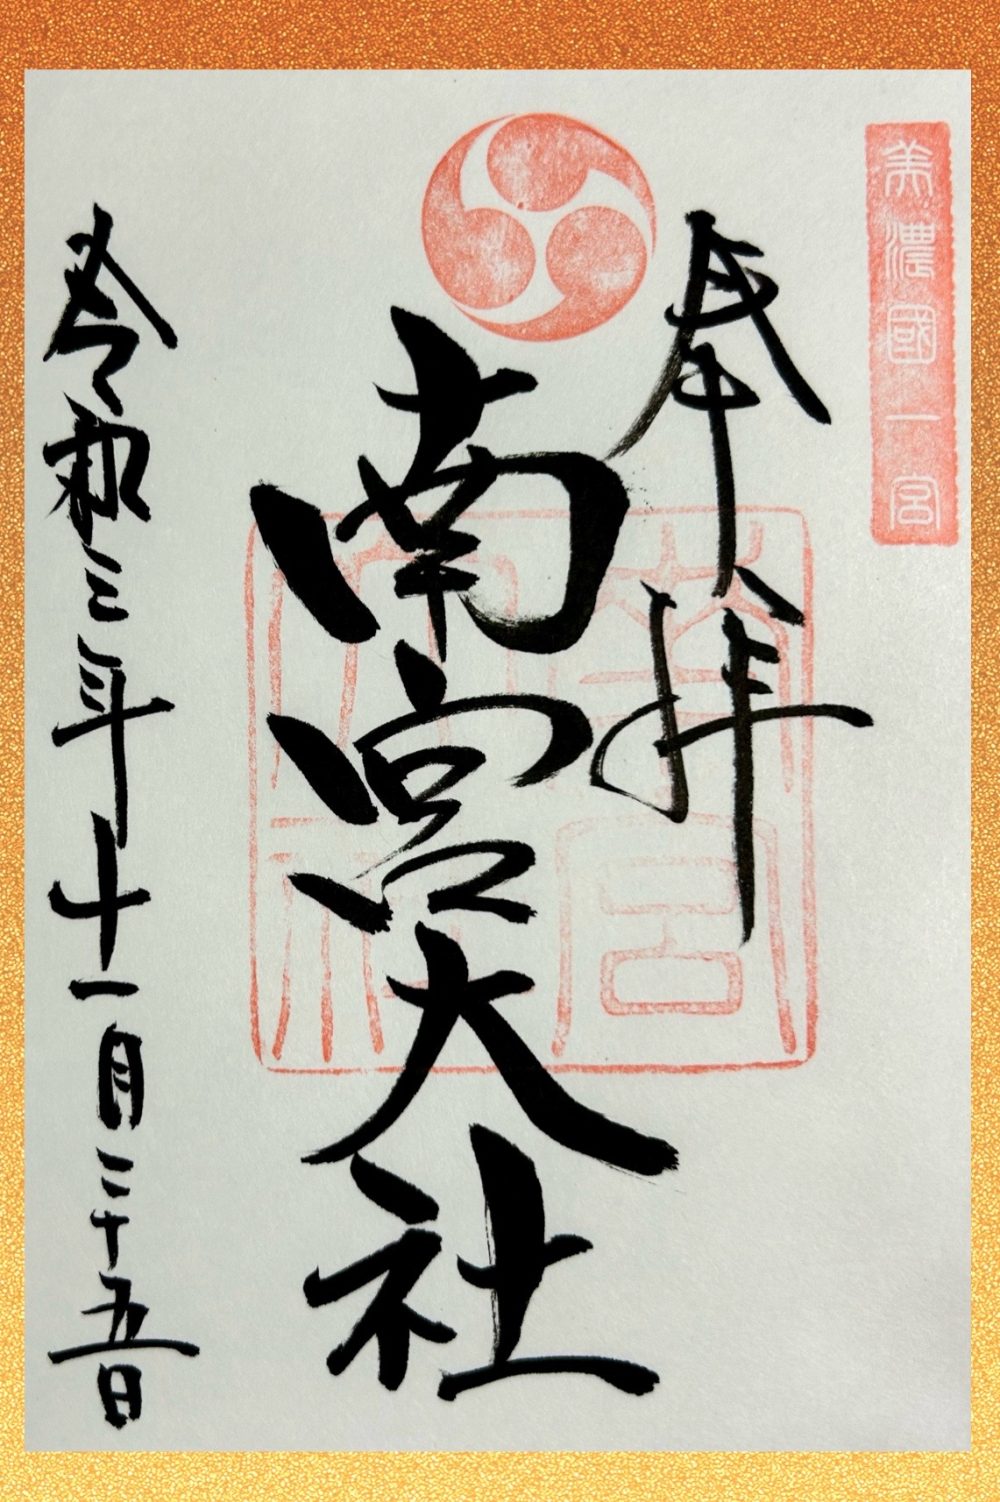 美濃國一宮
奉拝
南宮大社
令和三年十一月二十五日